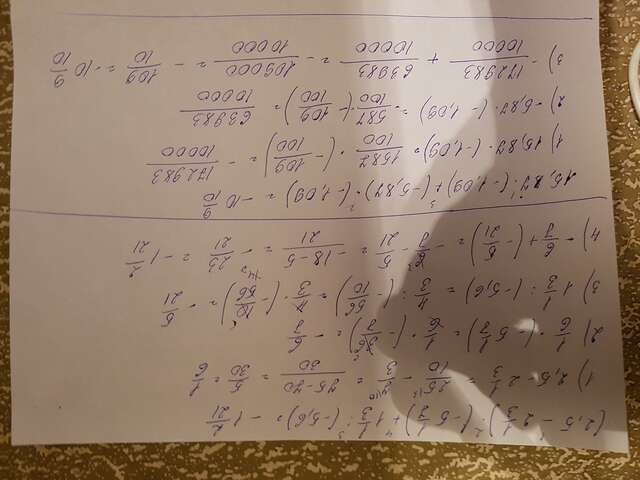 (2,5 - 2 1/3) · (-5 1/7) + 1 1/3 : (-5,6) = -1 2/21
1) 2,5 - 2 1/3 = 25/10 - 7/3 = 75-70/30 = 5/30 = 1/6
2) 1/6 · (-5 1/7) = 1/6 · (-36/7) = -6/7
3) 1 1/3 : (-5,6) = 4/3 : (-56/10) = 4/3 · (-10/56) = -5/21
4) -6/7 + (-5/21) = -6/7 - 5/21 = -18-5/21 = -23/21 = -1 2/21
15,87 · (-1,09) + (-5,87) · (-1,09) = -10 9/10
1) 15,87 · (-1,09) = 1587/100 · (-109/100) = -172983/10000
2) -5,87 · (-1,09) = -587/100 · (-109/100) = 63983/10000
3) -172983/10000 + 63983/10000 = -109000/10000 = -109/10 = -10 9/10